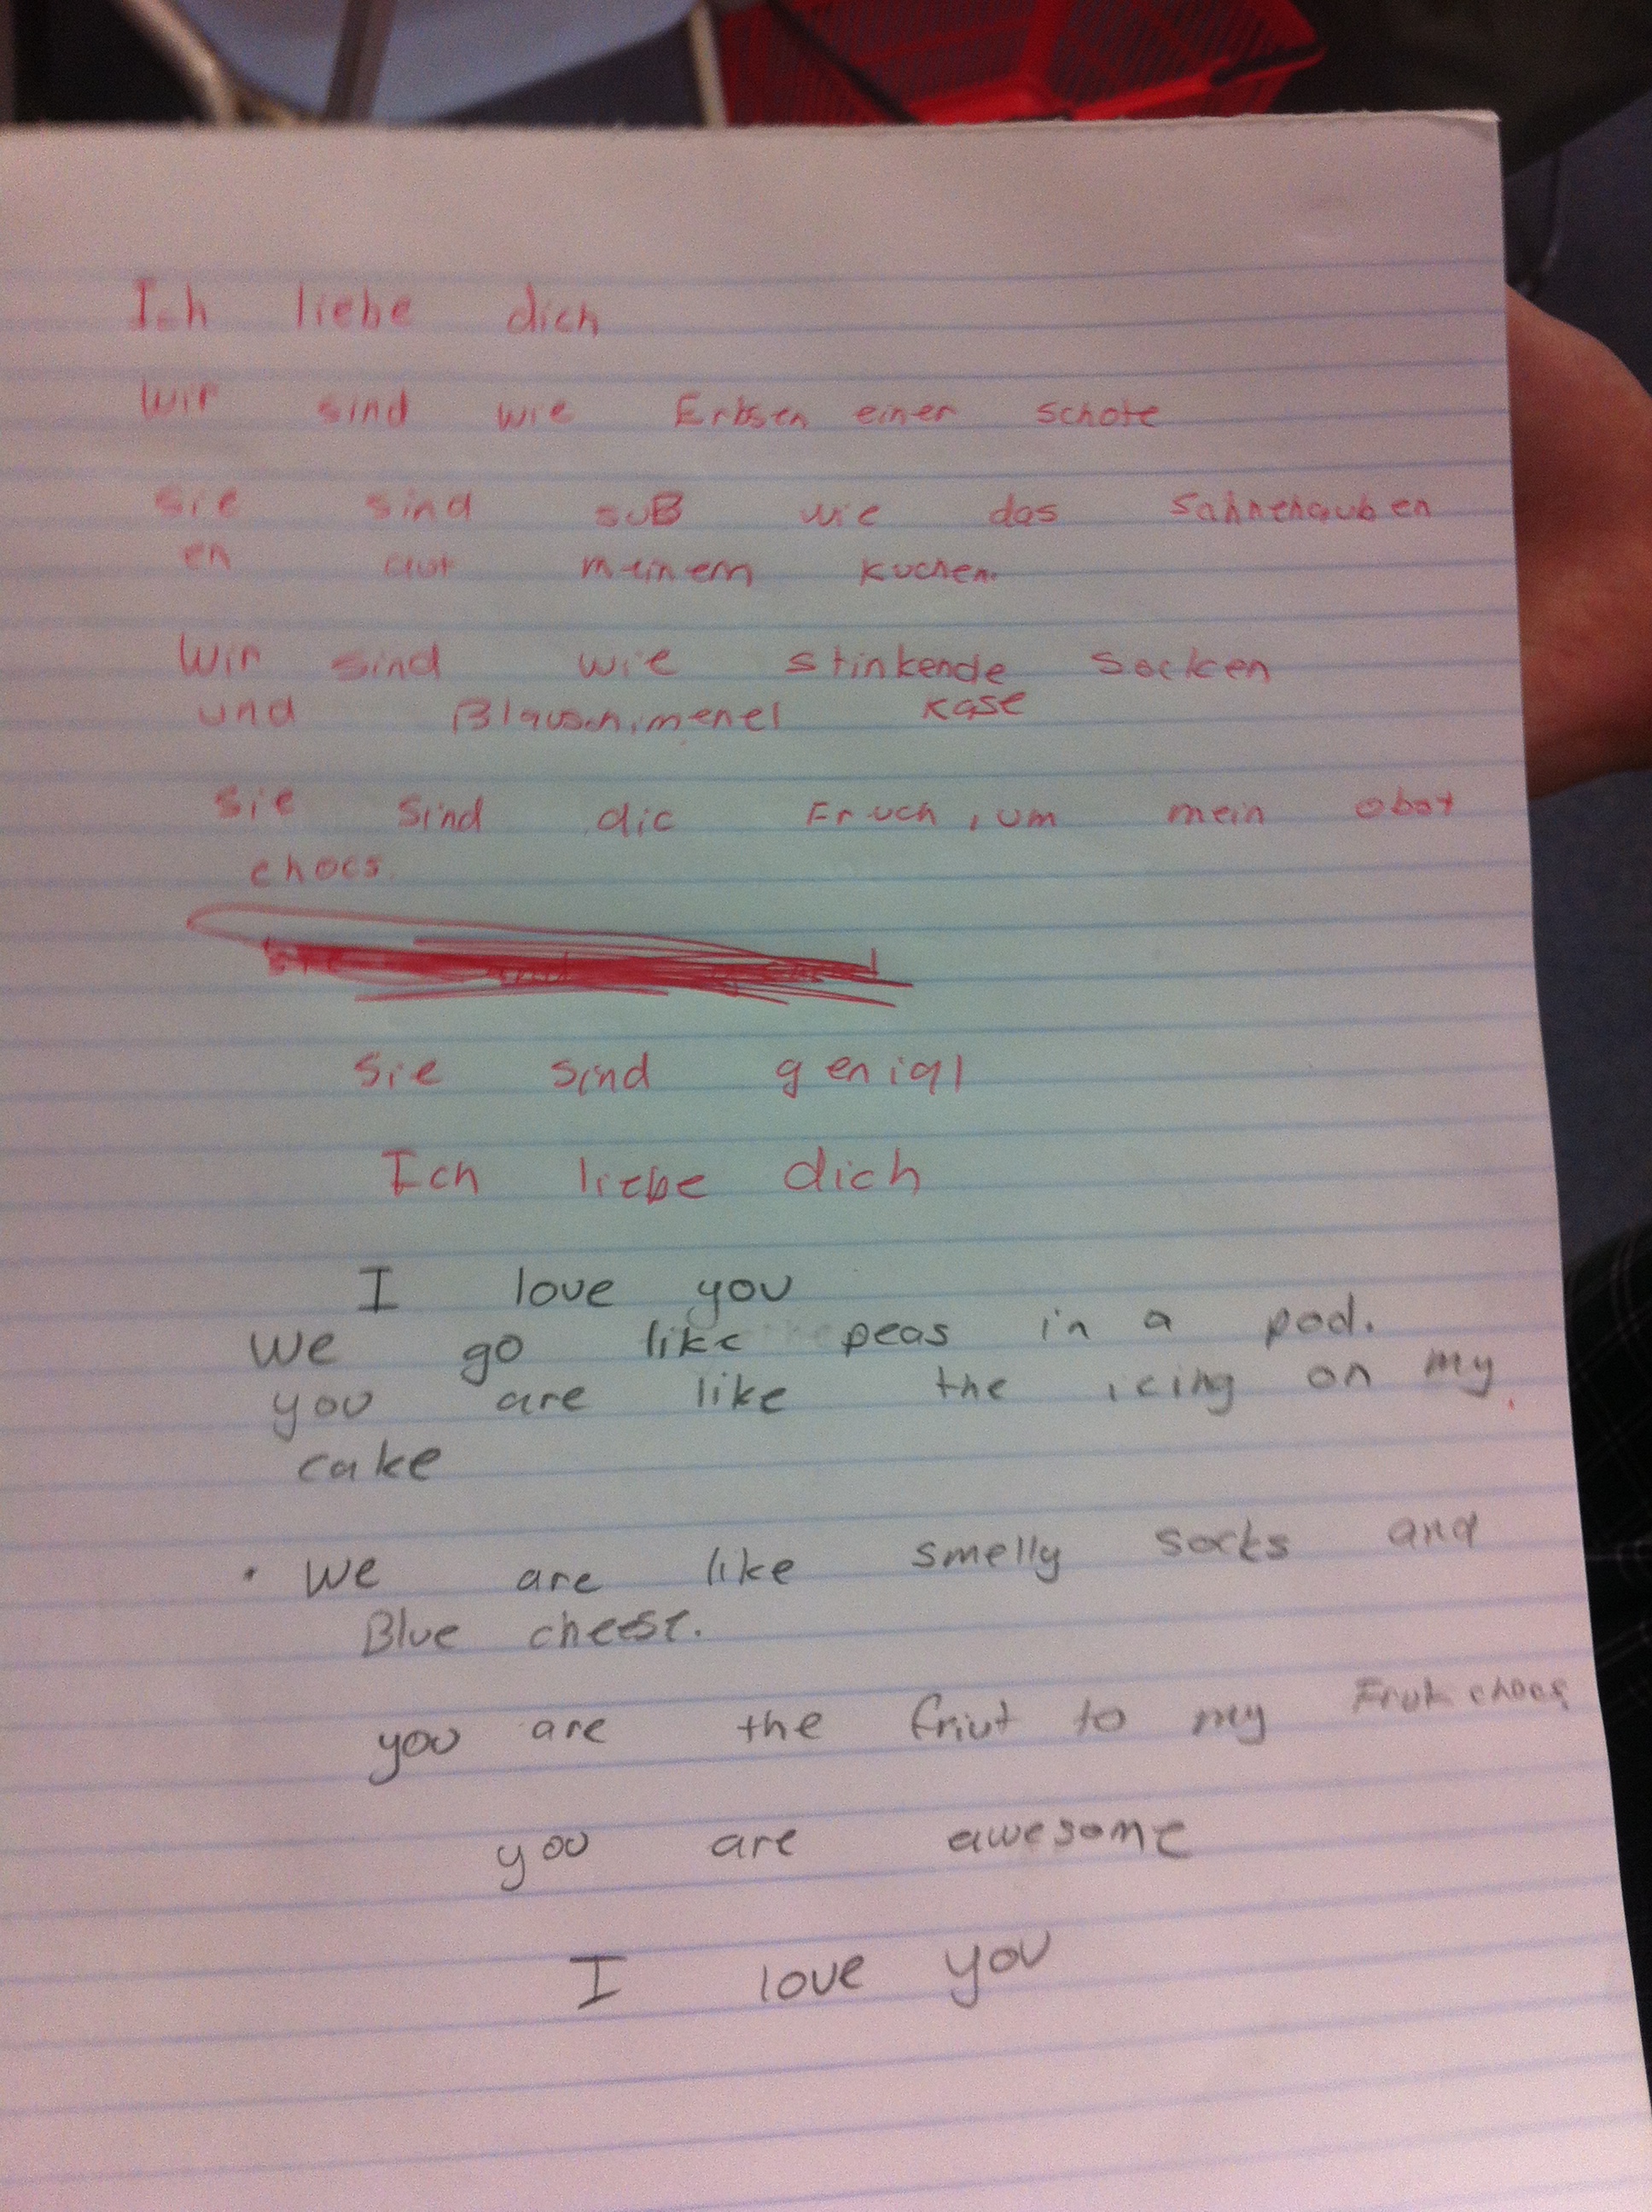 Ich liebe dich
Wir sind wie Erbsen einer schote
sie sind suß wie das Sahnehauben
en auf meinem kuchen.
Wir sind wie stinkende socken
und Blauschimenel kase
sie sind die Fruch, um mein obst
chocs.
sie sind genial
Ich liebe dich
I love you
We go like peas in a pod.
you are like the icing on my
cake
• We are like smelly socks and
Blue cheese.
you are the friut to my Fruit chocs
you are awesome
I love you